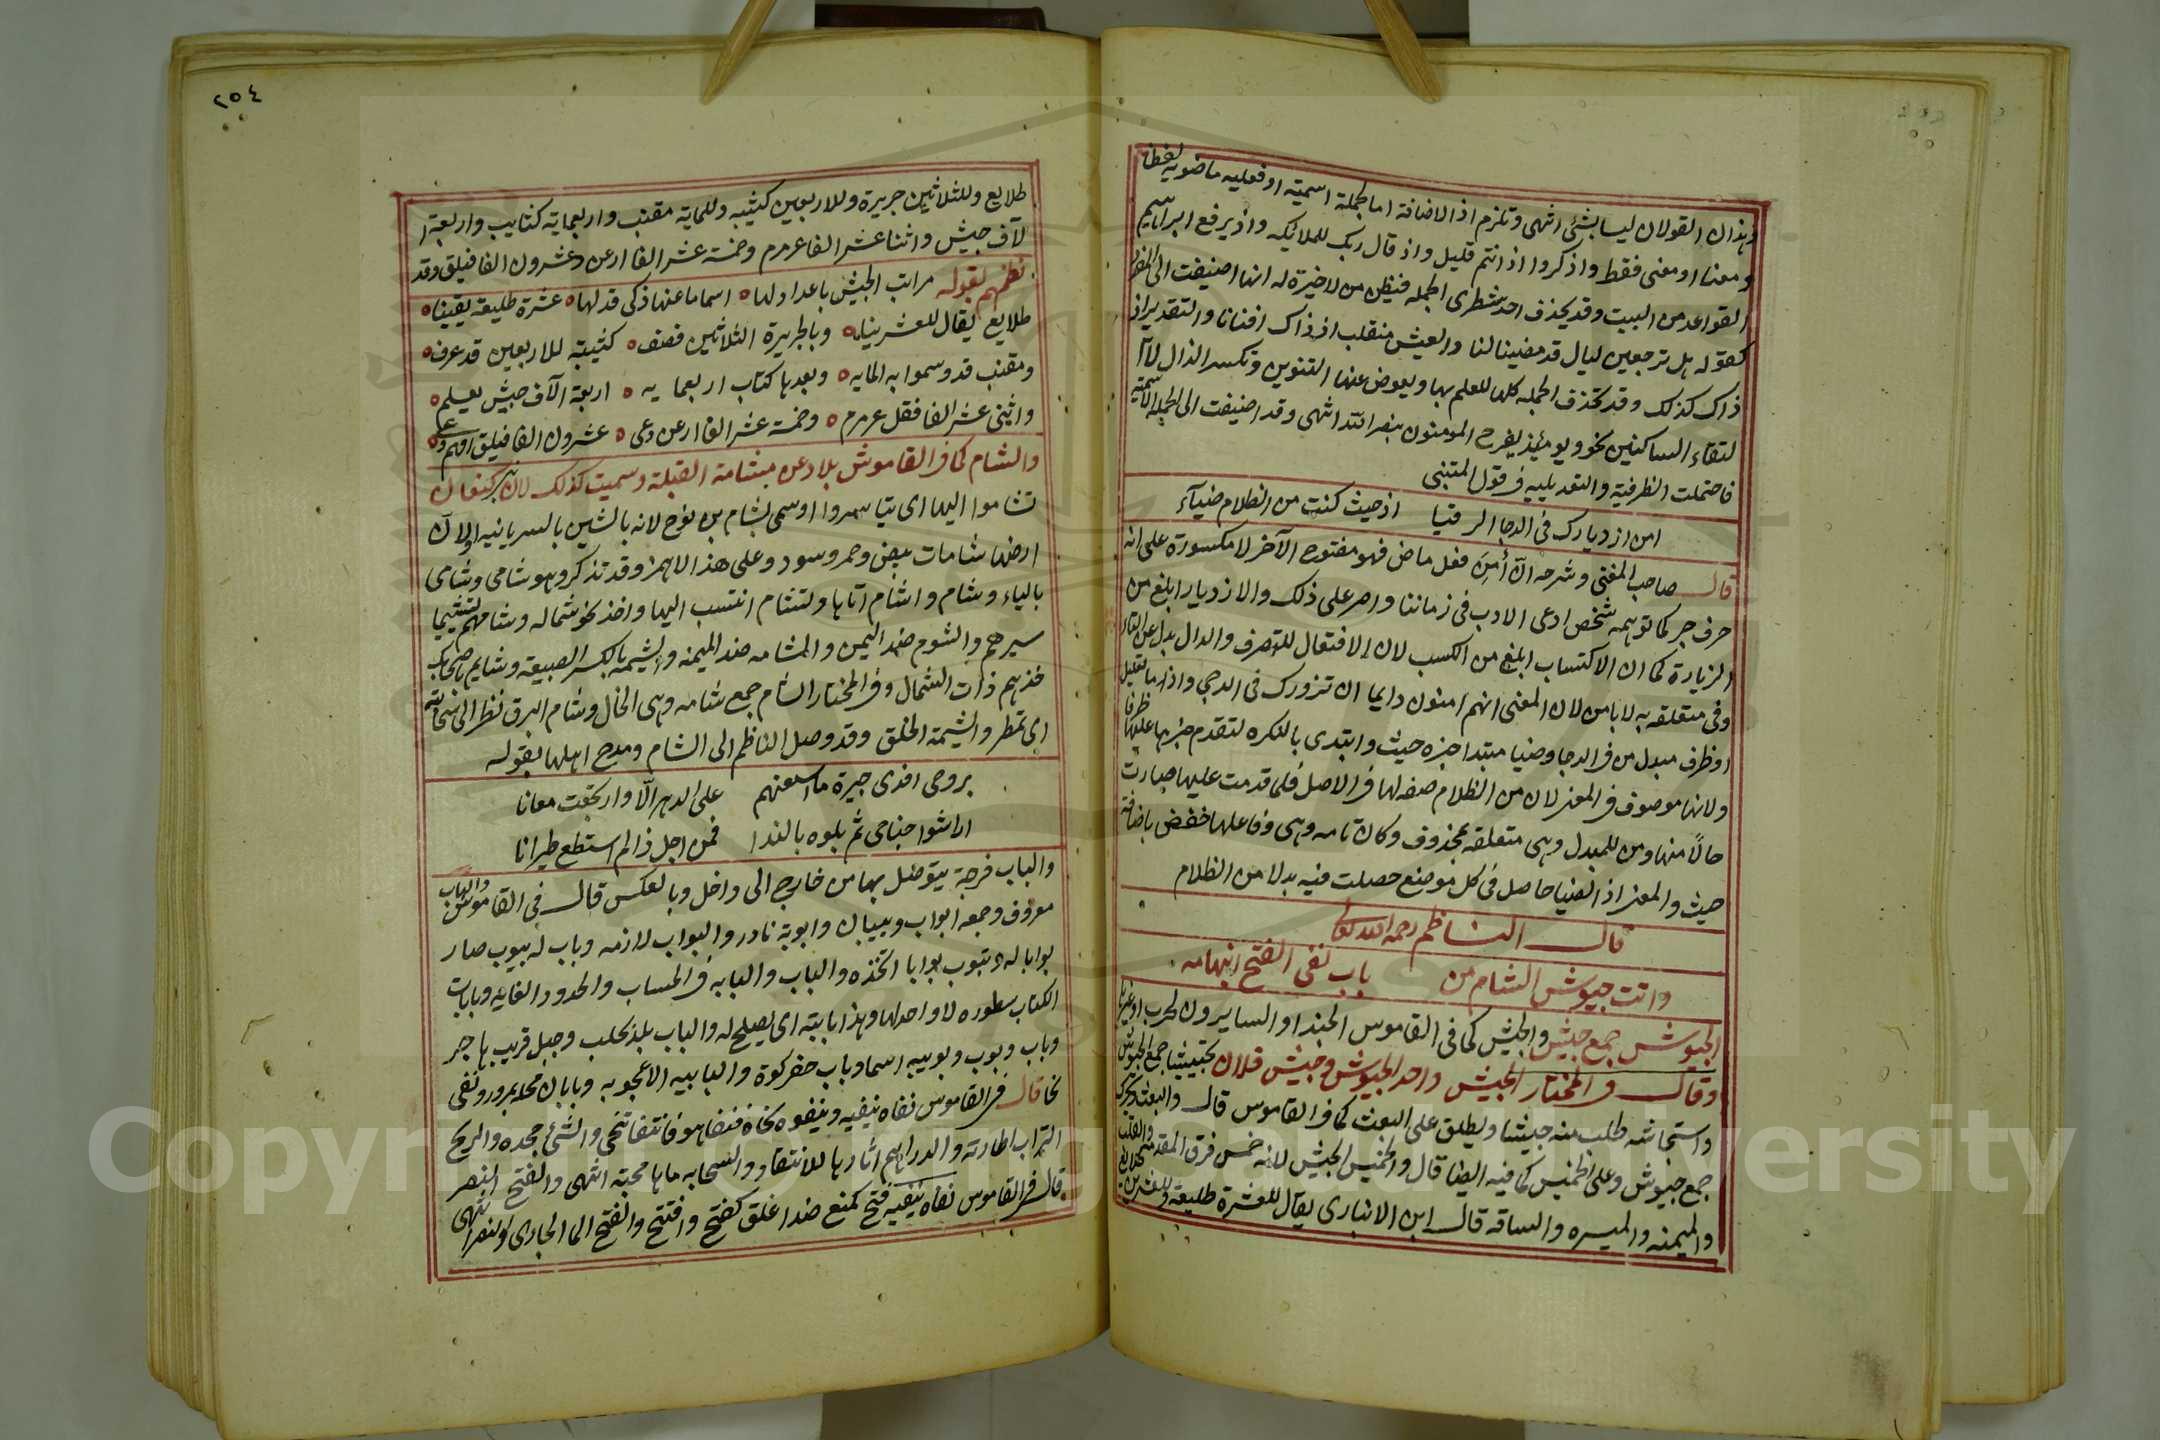 وهذان القولان ليسا بشئ انتهى وتلزم اذ الاضافة اما لجملة اسمية او فعليه ماضويه لفظا
ومعنا او معنى فقط واذكروا اذ انتم قليل واذ قال ربك للملائيكه واذ يرفع ابراهيم
القواعد من البيت وقد يحذف احد شطرى الجمله فيظن من لا خبرة له انها اضيفت الى المفرد
كقوله هل ترجعين ليال قد مضين لنا والعيش منقلب اذ ذاك افنانا والتقدير اذ
ذاك كذلك وقد تحذف الجمله كلها للعلم بها ويعوض عنها التنوين وتكسر الذال لا
لتقاء الساكنين نحو ويوميئذ يفرح المومنون بنصر الله انتهى وقد اضيفت الى الجملة الاسمية
فاحتملت الظرفية والتعديليه فى قول المتنبى
امن ازديارك فى الدجا الرقبا اذ حيث كنت من الظلام ضيآء
قال صاحب المغنى وشرحه ان أمِنَ فعل ماض فهو مفتوح الآخر لا مكسورة على انه
حرف جر كما توهمه شخص ادعى الادب فى زماننا واصر على ذلك والازديار ابلغ من
الزيارة كما ان الاكتساب ابلغ من الكسب لان الافتعال للتصرف والدال بدل عن التاء
وفى متعلقه به لا بامن لان المعنى انهم امنون دايما ان تزورك فى الدجى واذ اما تعليل
او ظرف مبدل من فى الدجا وضيا مبتدا خبره حيث وابتدى بالنكره لتقدم خبرها عليها ظرفا
ولانها موصوف فى المعنى لان من الظلام صفه لها فى الاصل فلما قدمت عليها صارت
حالًا منها ومن للمبدل وهى متعلقه بمحذوف وكان تامه وهى وفاعلها خفض باضافة
حيث والمعنى اذ الضيا حاصل فى كل موضع حصلت فيه بدلا من الظلام
قال الناظم رحمه الله تعالى
واتت جيوش الشام من باب نفى الفتح انبهامه
الجيوش جمع جيش والجيش كما فى القاموس الجند او السايرون لحرب او غيرها
وقال فى المختار الجيش واحد الجيوش وجيش فلان تجييشا جمع الجيوش
واستجاشه طلب منه جيشا ويطلق على البعث كما فى القاموس قال والبعث ويحرك
جمع جيوش وعلى الخميس كما فيه ايضا قال والخميس الجيش لانه خمس فرق المقدمه والقلب
والميمنه والميسره والساقه قال ابن الانبارى يقال للعشرة طليعة وللعشرين
٢٥٤
طلايع وللثلاثين جريرة وللاربعين كثيبه وللمايه مقنب واربعمايه كتايب واربعة ا
لآف جيش واثنا عشر الفا عرمرم وخمسة عشر الفا ارعن وعشرون الفا فيلق وقد
نظمهم بقوله مراتب الجيش باعداد لها اسما ما عنها ذكى قد لها عشرة طليعة يقينا
طلايع يقال للعشرينا وبالجريرة الثلاثين فصف كثيبة للاربعين قد عرف
ومقنب قد وسموا به المايه وبعدها كتاب اربعمايه اربعة الآف جيش يعلم
واثنى عشر الفا فقل عرمرم وخمسة عشر الفا ارعن دعى عشرون الفا فيلق افهم وع
والشام كما فى القاموش بلاد عن مشامة القبلة وسميت كذلك لان بنى كنعان
تشاموا اليها اى تياسروا او سمى بشام بن نوح لانه بالشين بالسريانيه او لان
ارضها شامات بيض وحمر وسود وعلى هذا لا يهمز وقد تذكر وهو شامى وشامى
بالياء وشام واشام اتاها وتشام انتسب اليها واخذ نحو شماله وشامهم تشيما
سيرهم والشوم ضد اليمن والمشامه ضد الميمنه والشيمه بالكسر الطبيعة وشايم باصحابك
خذ بهم ذات الشمال وفى المختار الشام جمع شامه وهى الخال وشام البرق نظر الى سحابته
اين تمطر والشيمة الخلق وقد وصل الناظم الى الشام ومدح اهلها بقوله
بروحى افدى جيرة ما اسعنهم على الدهر الّا وارتجعت معانا
اراشوا جناحى ثم بلوه بالندا فمن اجل ذا لم استطع طيرانا
والباب فرجة يتوصل بها من خارج الى داخل وبالعكس قال فى القاموس والباب
معروف وجمعه ابواب وبيبان وابوبة نادر والبواب لازمه وباب له يبوب صار
بوابا له وتبوب بوابا اتخذه والباب والبابه فى الحساب والحدود الغايه وبابات
الكتاب سطوره لا واحد لها وهذا بابته اى يصلح له والباب بلد بحلب وجبل قريب هاجر
وباب وبوب وبويبه اسما وباب حفر كوة والبابيه الاعجوبه وبابان محله بمرو ونفى
نحا قال فى القاموس نفاه ينفيه وينفوه نحاه فنفا هو فانتفا تنحى والشئ جحده والريح
التراب اطارته والدراهم اثارها للانتقاد والسحابه ماها مجته انتهى والفتح النصر
قال فى القاموس فتح كمنع ضد اغلق كفتح وافتتح والفتح الما الجارى والنصر انتهى